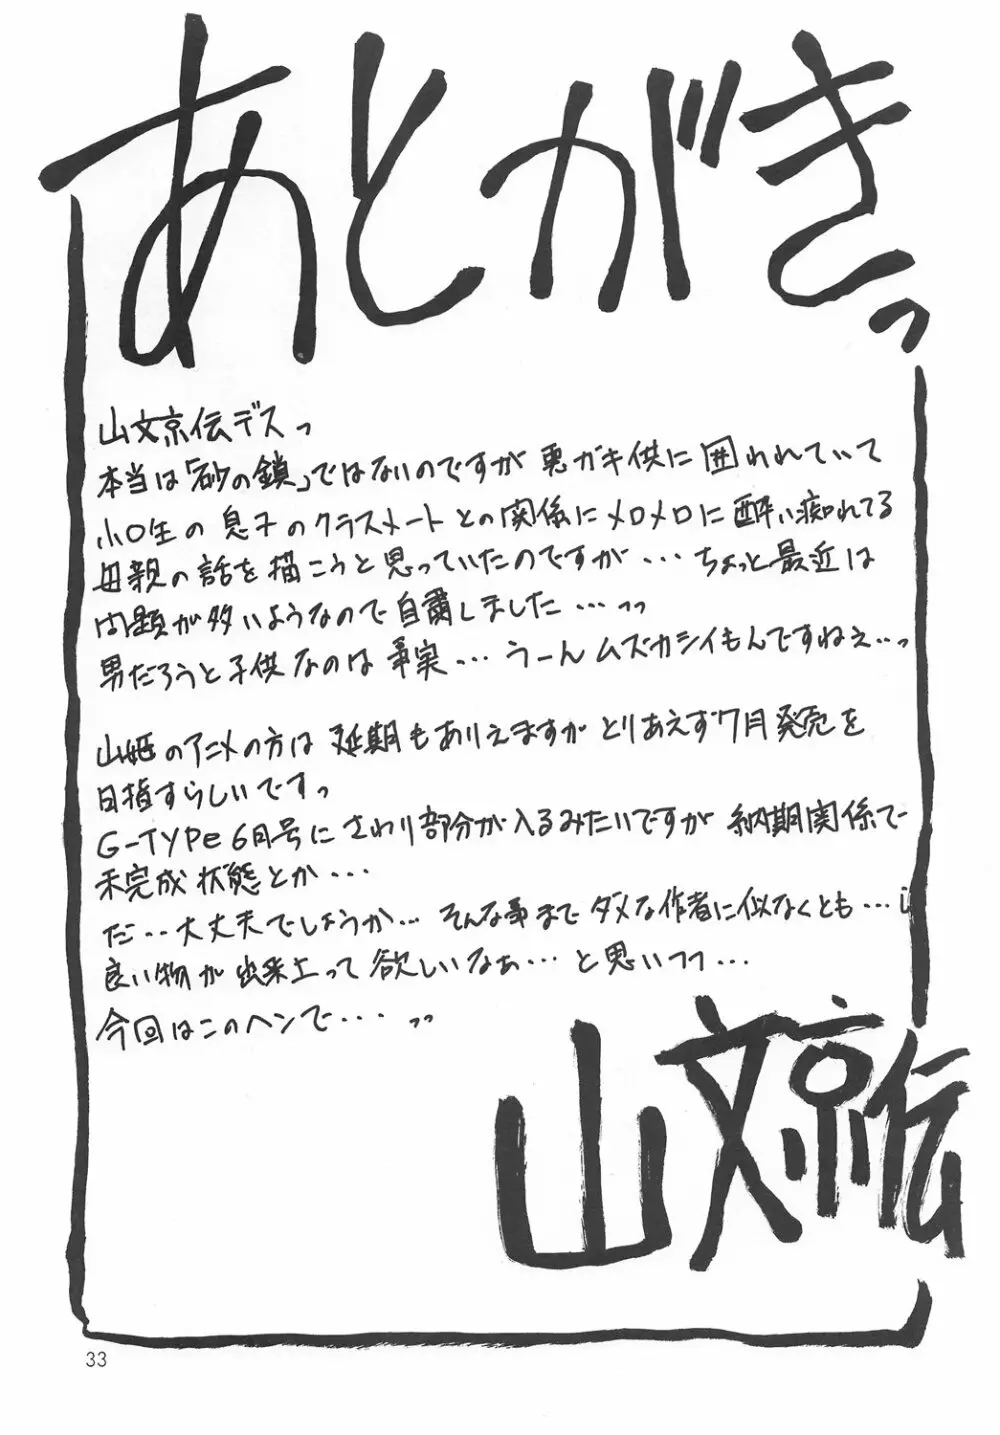 あとがきっ
山文京伝デスっ
本当は「砂の鎖」ではないのですが悪ガキ供に囲われれていて
小〇生の息子のクラスメートとの関係にメロメロに酔い痴れてる
母親の話を描こうと思っていたのですが・・・ちょっと最近は
問題が多いようなので自粛しました・・・っっ
男だろうと子供なのは事実・・・うーんムズカシイもんですねぇ・・・っ
山姫のアニメの方は延期もありえますがとりあえず7月発売を
目指すらしいですっ
G-TYPe 6月号にさわり部分が入るみたいですが納期関係で
未完成状態とか・・・
だ・・・大丈夫でしょうか・・・そんな事までダメな作者に似なくとも・・・
良い物が出来上って欲しいなぁ・・・と思いつつ・・・
今回はこのヘンで・・・っっ
山文京伝
33